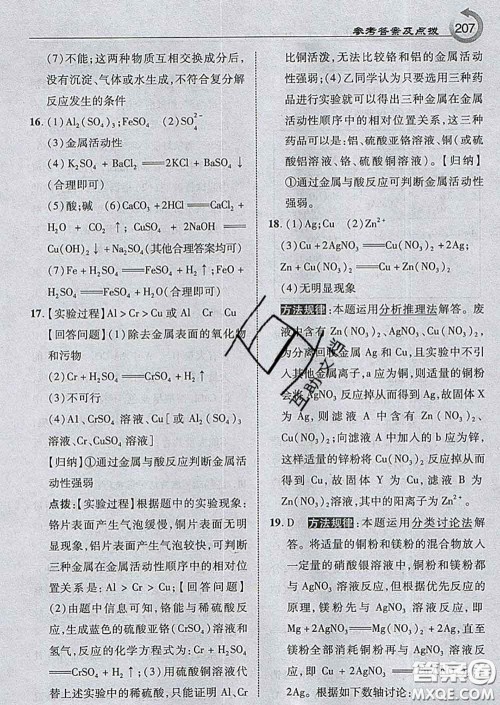 参考答案及点拨 207
(7)不能;这两种物质互相交换成分后,
没有沉淀、气体或水生成,不符合复分解
反应发生的条件
16. (1)Al₂(SO₄)₃;FeSO₄ (2)SO₄²⁻
(3)金属活动性
(4)K₂SO₄ + BaCl₂ ══ 2KCl + BaSO₄↓
(合理即可)
(5)酸;碱 (6)CaCO₃ + 2HCl ══ CaCl₂ +
H₂O + CO₂↑; CuSO₄ + 2NaOH ══
Cu(OH)₂↓ + Na₂SO₄(其他合理答案均可)
(7)Fe + H₂SO₄ ══ FeSO₄ + H₂↑(合
理即可)
17.【实验过程】Al > Cr > Cu 或 Al Cr Cu
【回答问题】(1)除去金属表面的氧化物
和污物
(2)Cr + H₂SO₄ ══ CrSO₄ + H₂↑
(3)不可行
(4)Al、CrSO₄ 溶液、Cu[或 Al₂(SO₄)₃
溶液、Cr、CuSO₄ 溶液]
【归纳】①通过金属与酸反应判断金属活
动性强弱
点拨:【实验过程】根据题中的实验现象:
铬片表面产生气泡缓慢,铜片表面无明显
现象,铝片表面产生气泡较快,可判断
三种金属在金属活动性顺序中的相对
位置关系是:Al > Cr > Cu;【回答问题】
(2)由题中信息可知,铬能与稀硫酸反
应,生成蓝色的硫酸亚铬(CrSO₄)溶液和
氢气,发生反应的化学方程式为 Cr +
H₂SO₄ ══ CrSO₄ + H₂↑;(3)用硫酸铜溶液代
替上述实验中的稀硫酸,只能证明 Al、Cr
比铜活泼,无法比较铬和铝的金属活动
性强弱;(4)乙同学认为只要选用三种药
品进行实验就可以得出三种金属在金属
活动性顺序中的相对位置关系,这三种
药品可以是:铝、硫酸亚铬溶液、铜(或硫
酸铝溶液、铬、硫酸铜溶液)。【归纳】
①通过金属与酸反应可判断金属活动性
强弱。
18. (1)Ag;Cu (2)Zn²⁺
(3)Cu + 2AgNO₃ ══ Cu(NO₃)₂ + 2Ag;
Zn + Cu(NO₃)₂ ══ Zn(NO₃)₂ + Cu
(4)无明显现象
方法规律:本题运用分析推理法解答。废
液中含有 Zn(NO₃)₂、AgNO₃、Cu(NO₃)₂,
为分离回收金属 Ag 和 Cu,且实验中不引
入其他金属离子,a 应为铜,而适量的铜粉
会与 AgNO₃ 反应掉而得到 Ag,故固体 X
为 Ag,则滤液 A 中含有 Zn(NO₃)₂、
Cu(NO₃)₂;向滤液 A 中加入的 b 应为锌,
适量的锌粉将 Cu(NO₃)₂ 反应掉而得到
Cu,故固体 Y 是 Cu,则滤液 B 中含有
Zn(NO₃)₂,所含金属离子是 Zn²⁺。
19. D 方法规律:本题运用分类讨论法解
答。将适量的铜粉和镁粉的混合物放入
一定量的硝酸银溶液中,铜粉和镁粉都
与 AgNO₃ 溶液反应,但根据优先反应的
原则,镁粉先与 AgNO₃ 溶液反应,即
Mg + 2AgNO₃ ══ Mg(NO₃)₂ + 2Ag,
镁粉全部消耗铜粉再与 AgNO₃ 溶液
反应,即 Cu + 2AgNO₃ ══ Cu(NO₃)₂ +
2Ag,根据如下数轴讨论:
互助文档
答案圈
MXQE.COM